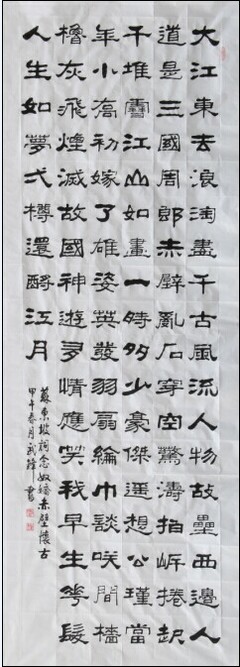 大江東去浪淘盡千古風流人物故壘西邊人
道是三國周郎赤壁亂石穿空驚濤拍岸捲起
千堆雪江山如畫一時多少豪傑遥想公瑾當
年小喬初嫁了雄姿英發羽扇綸巾談咲間檣
櫓灰飛煙滅故國神遊多情應笑我早生華髮
人生如夢弌樽還酹江月
蘇東坡詞念奴嬌赤壁懷古
甲午春月武鋒書